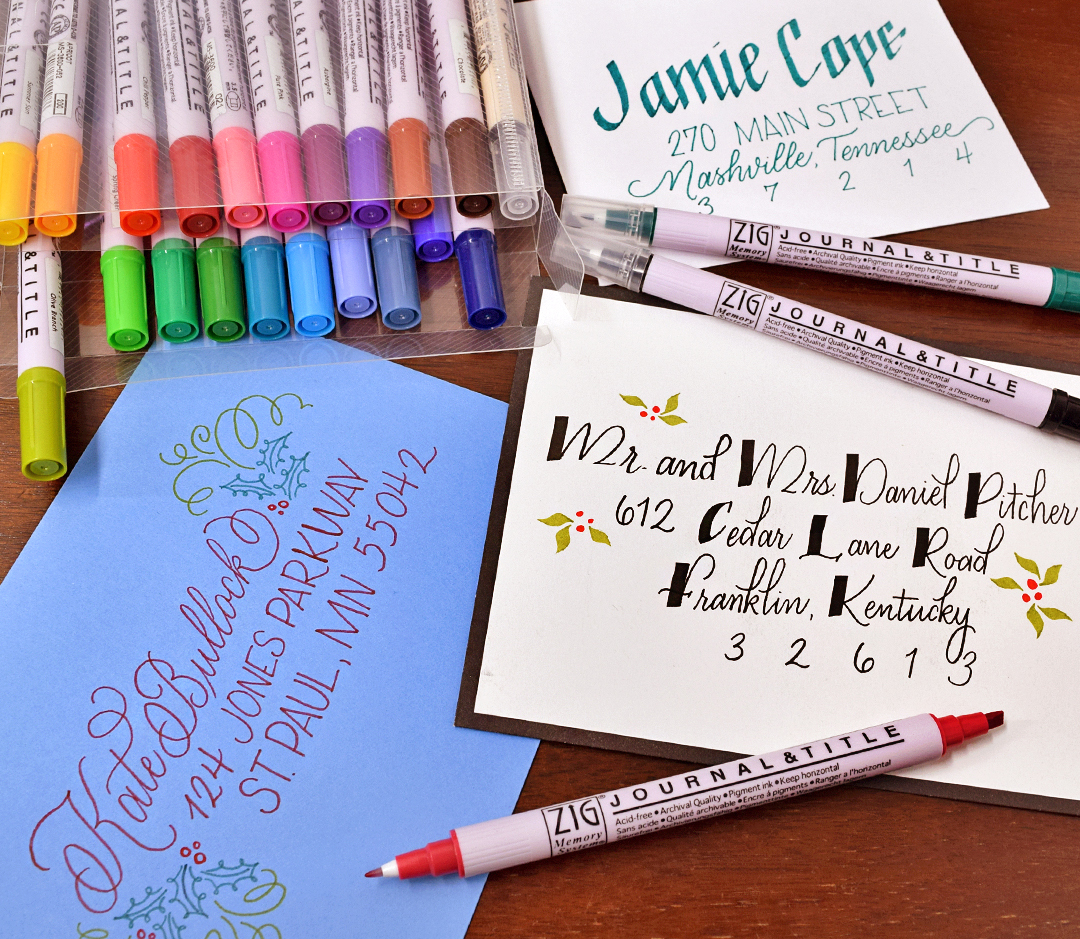 JOURNAL & TITLE
Chili Pepper
Pure Pink
Aubergine
Chocolate
Olive Branch
TITLE
Jamie Cope
270 MAIN STREET
Nashville, Tennessee
3 7 2 1 4
ZIG
Memory
Systems
JOURNAL & TITLE
Acid-free • Archival Quality • Pigment ink • Keep horizontal
Sans acide • Qualité archivable • Encre à pigments • Ranger à l'horizontal
ZIG
Memory
Systems
JOURNAL & TITLE
Acid-free • Archival Quality • Pigment ink • Keep horizontal
Sans acide • Qualité archivable • Encre à pigments • Ranger à l'horizontal
Mr. and Mrs. Daniel Pitcher
612 Cedar Lane Road
Franklin, Kentucky
3 2 6 1 3
Kate Bullock
124 JONES PARKWAY
ST. PAUL, MN 55042
ZIG
Memory
Systems
JOURNAL & TITLE
Acid-free • Archival Quality • Pigment ink • Keep horizontal
Sans acide • Qualité archivable • Encre à pigments • Ranger à l'horizontal